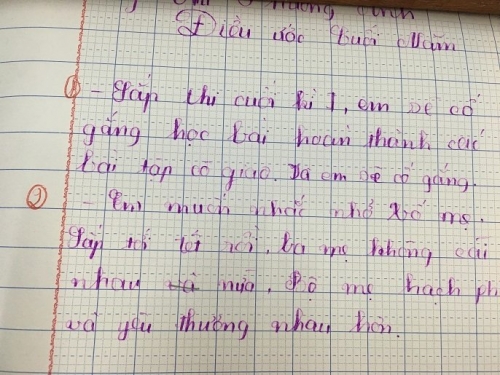 Điều ước cuối năm
① - Sắp thi cuối kì 1, em sẽ cố
gắng học bài hoàn thành các
bài tạp cô giao. Và em sẽ cố gắng.
① - Em muốn nhắc nhở bố mẹ.
Sắp tới tết rồi, ba mẹ không cãi
nhau nữa. Bố mẹ hạch ph
và yêu thương nhau hơn.